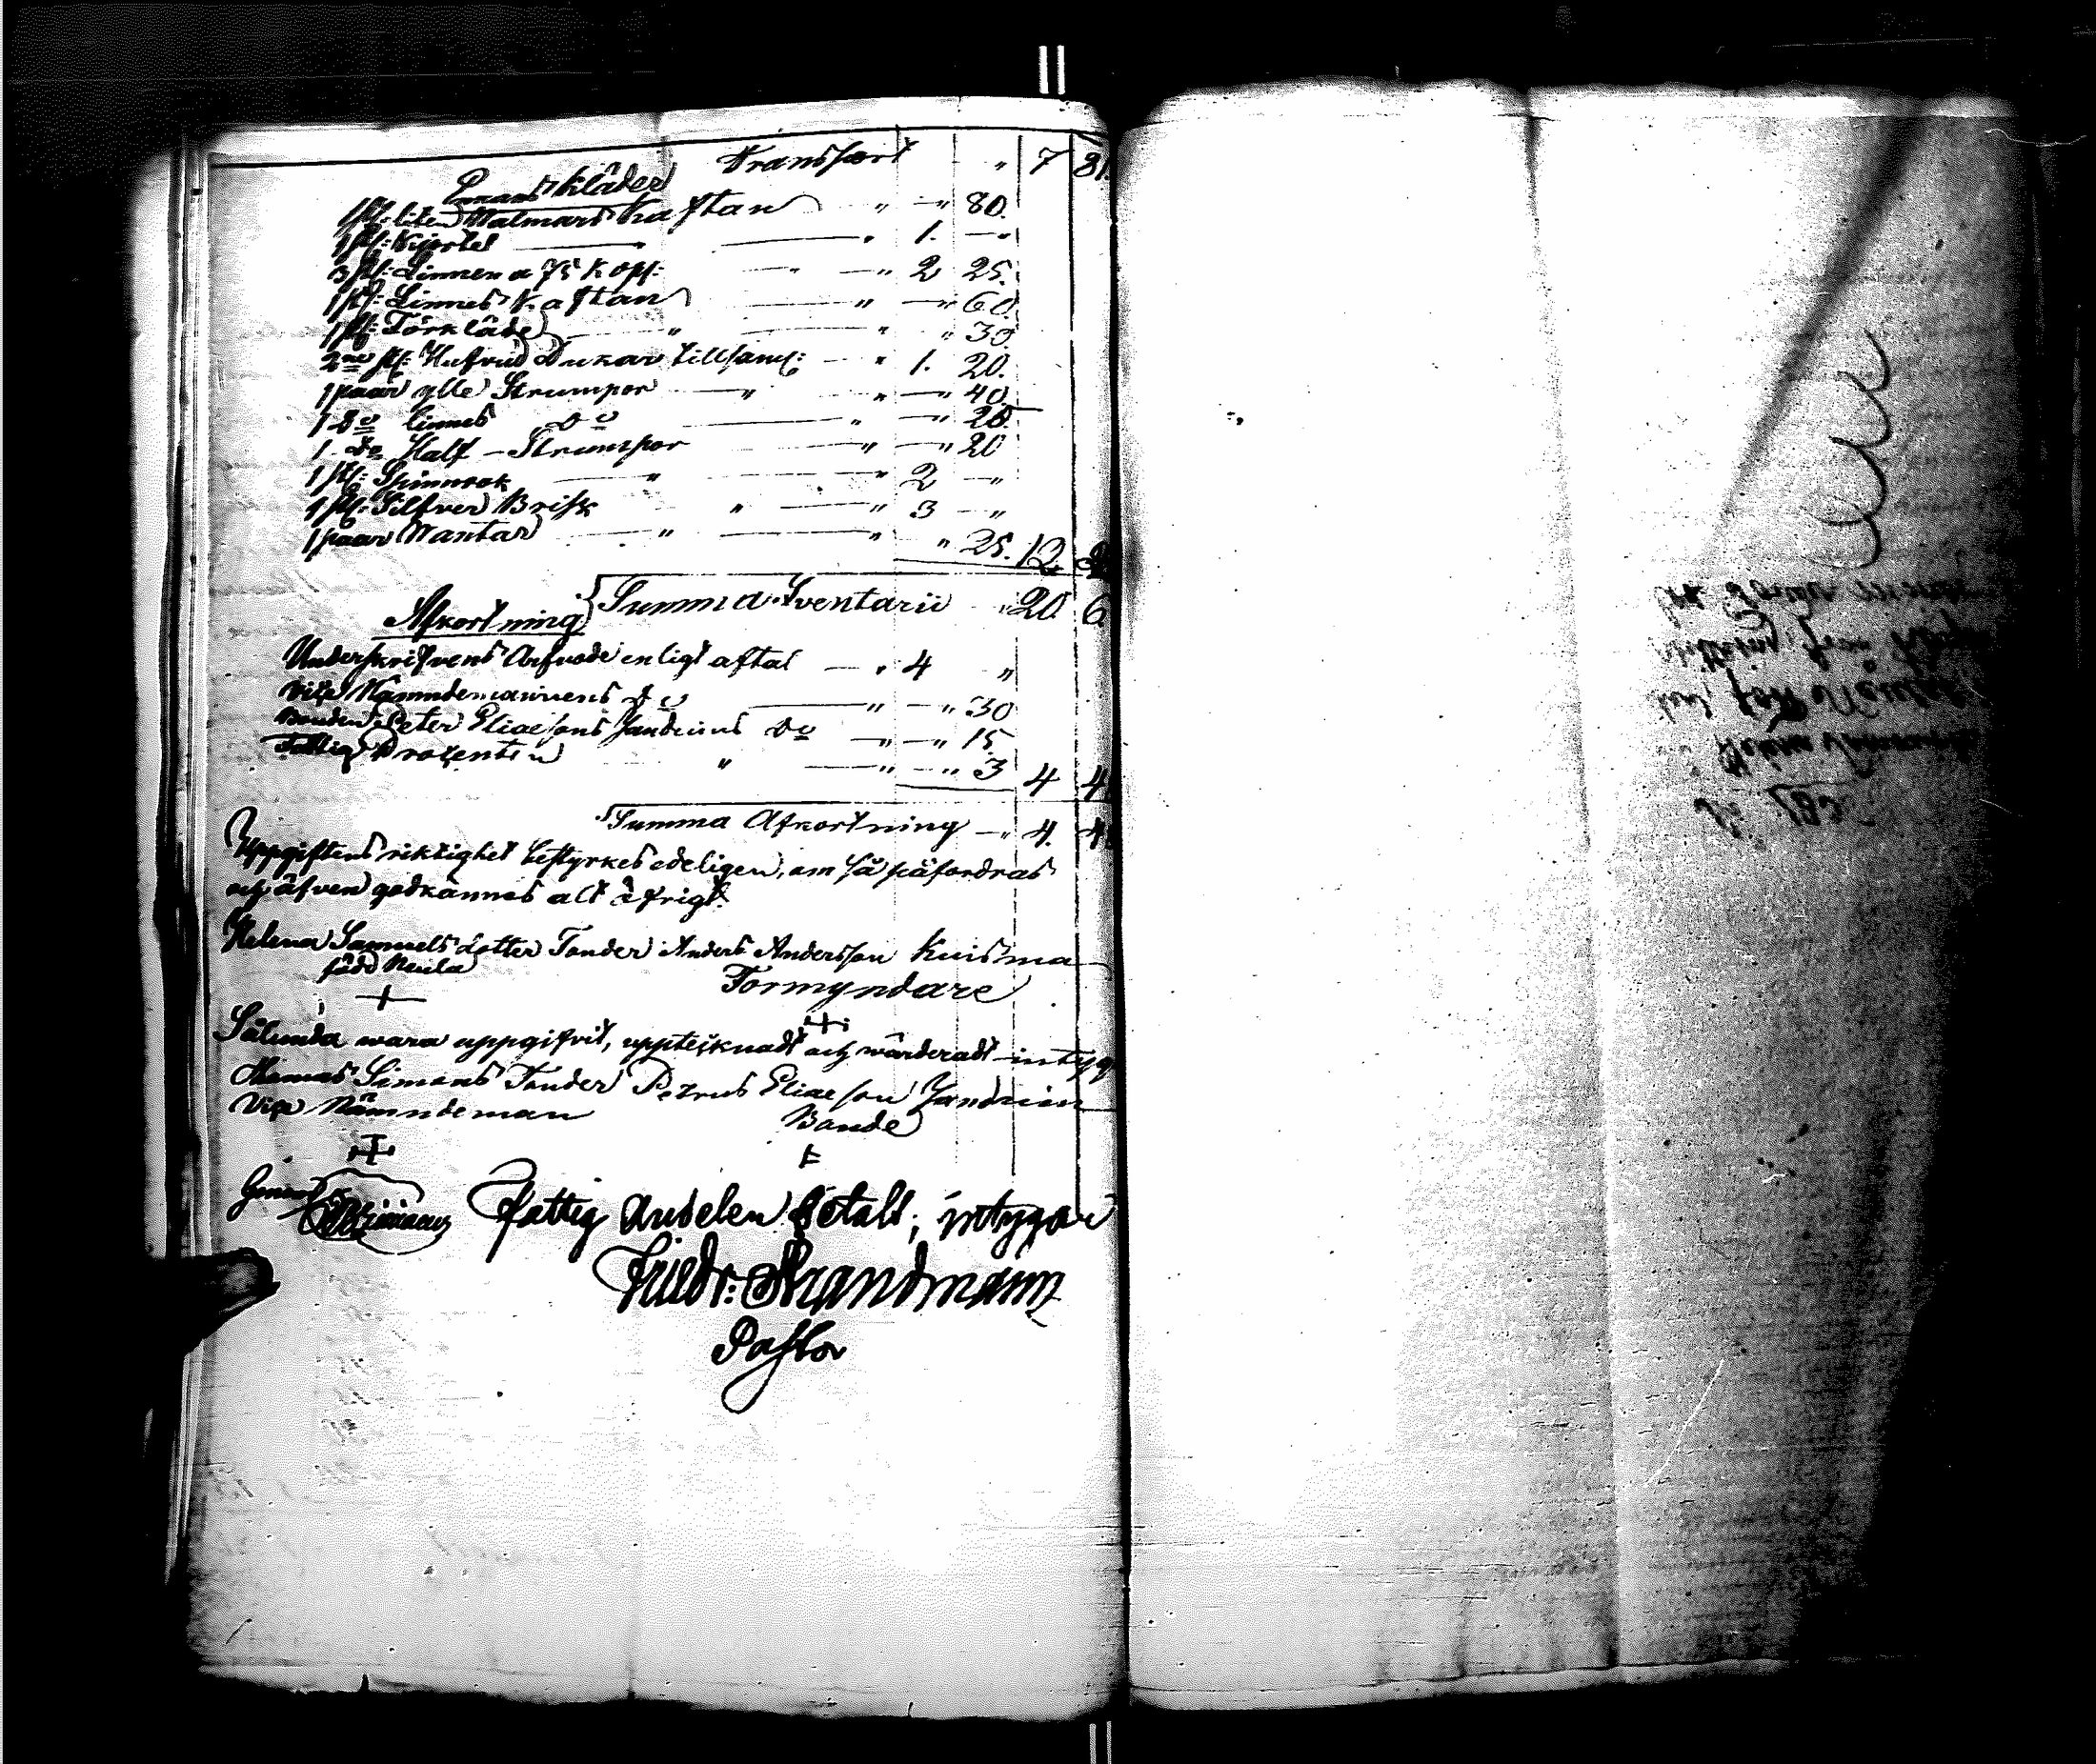 Transport " 7 81.
Kläder
1 st: liten Walmars Kaftan " —" 80.
1 st: Kjortel — " 1. —"
3 st: Linnen a 75 Kop: —" 2 25.
1 st: Linnes Kaftan — " —" 60.
1 st: Förkläde — " — " " 30.
2ne st: Hufvud Dukar tillsam: — " 1. 20.
1 paar ylle Strumpor — " " —" 40.
1 do linnes do — " —" 25.
1 do Half-Strumpor — " —" 20
1 st: Spinnrok — " — " 2 —"
1 st: Silfver Brisk " — " 3 —"
1 paar Wantar — " — " " 25. 12
Summa Iventarii " 20 6
Afkortning
Underskrifvens Arfvode enligt aftal — " 4 "
Vice Nämndemannens do — " —" 30
Bonden Peter Eliaesons Jandunus do —" —" 15.
Fattig Procenten " — " —" 3 4 4
Summa Afkortning —" 4. 4
Uppgiftens riktighet bestyrkes edeligen, om så påfordras
och äfven godkännes alt öfrigt.
Helena Samuels dotter Tonder Anders Andersson Kuisma
född Neula
Formyndare
Sålunda wara uppgifvit, uppteiknadt och wärderadt intyg
Thomas Simons Tonder Petrus Eliaeson
Vice Nämndeman Bonde
Fattig Andelen betalt; intygar
Friedr: Strandmann
Pastor